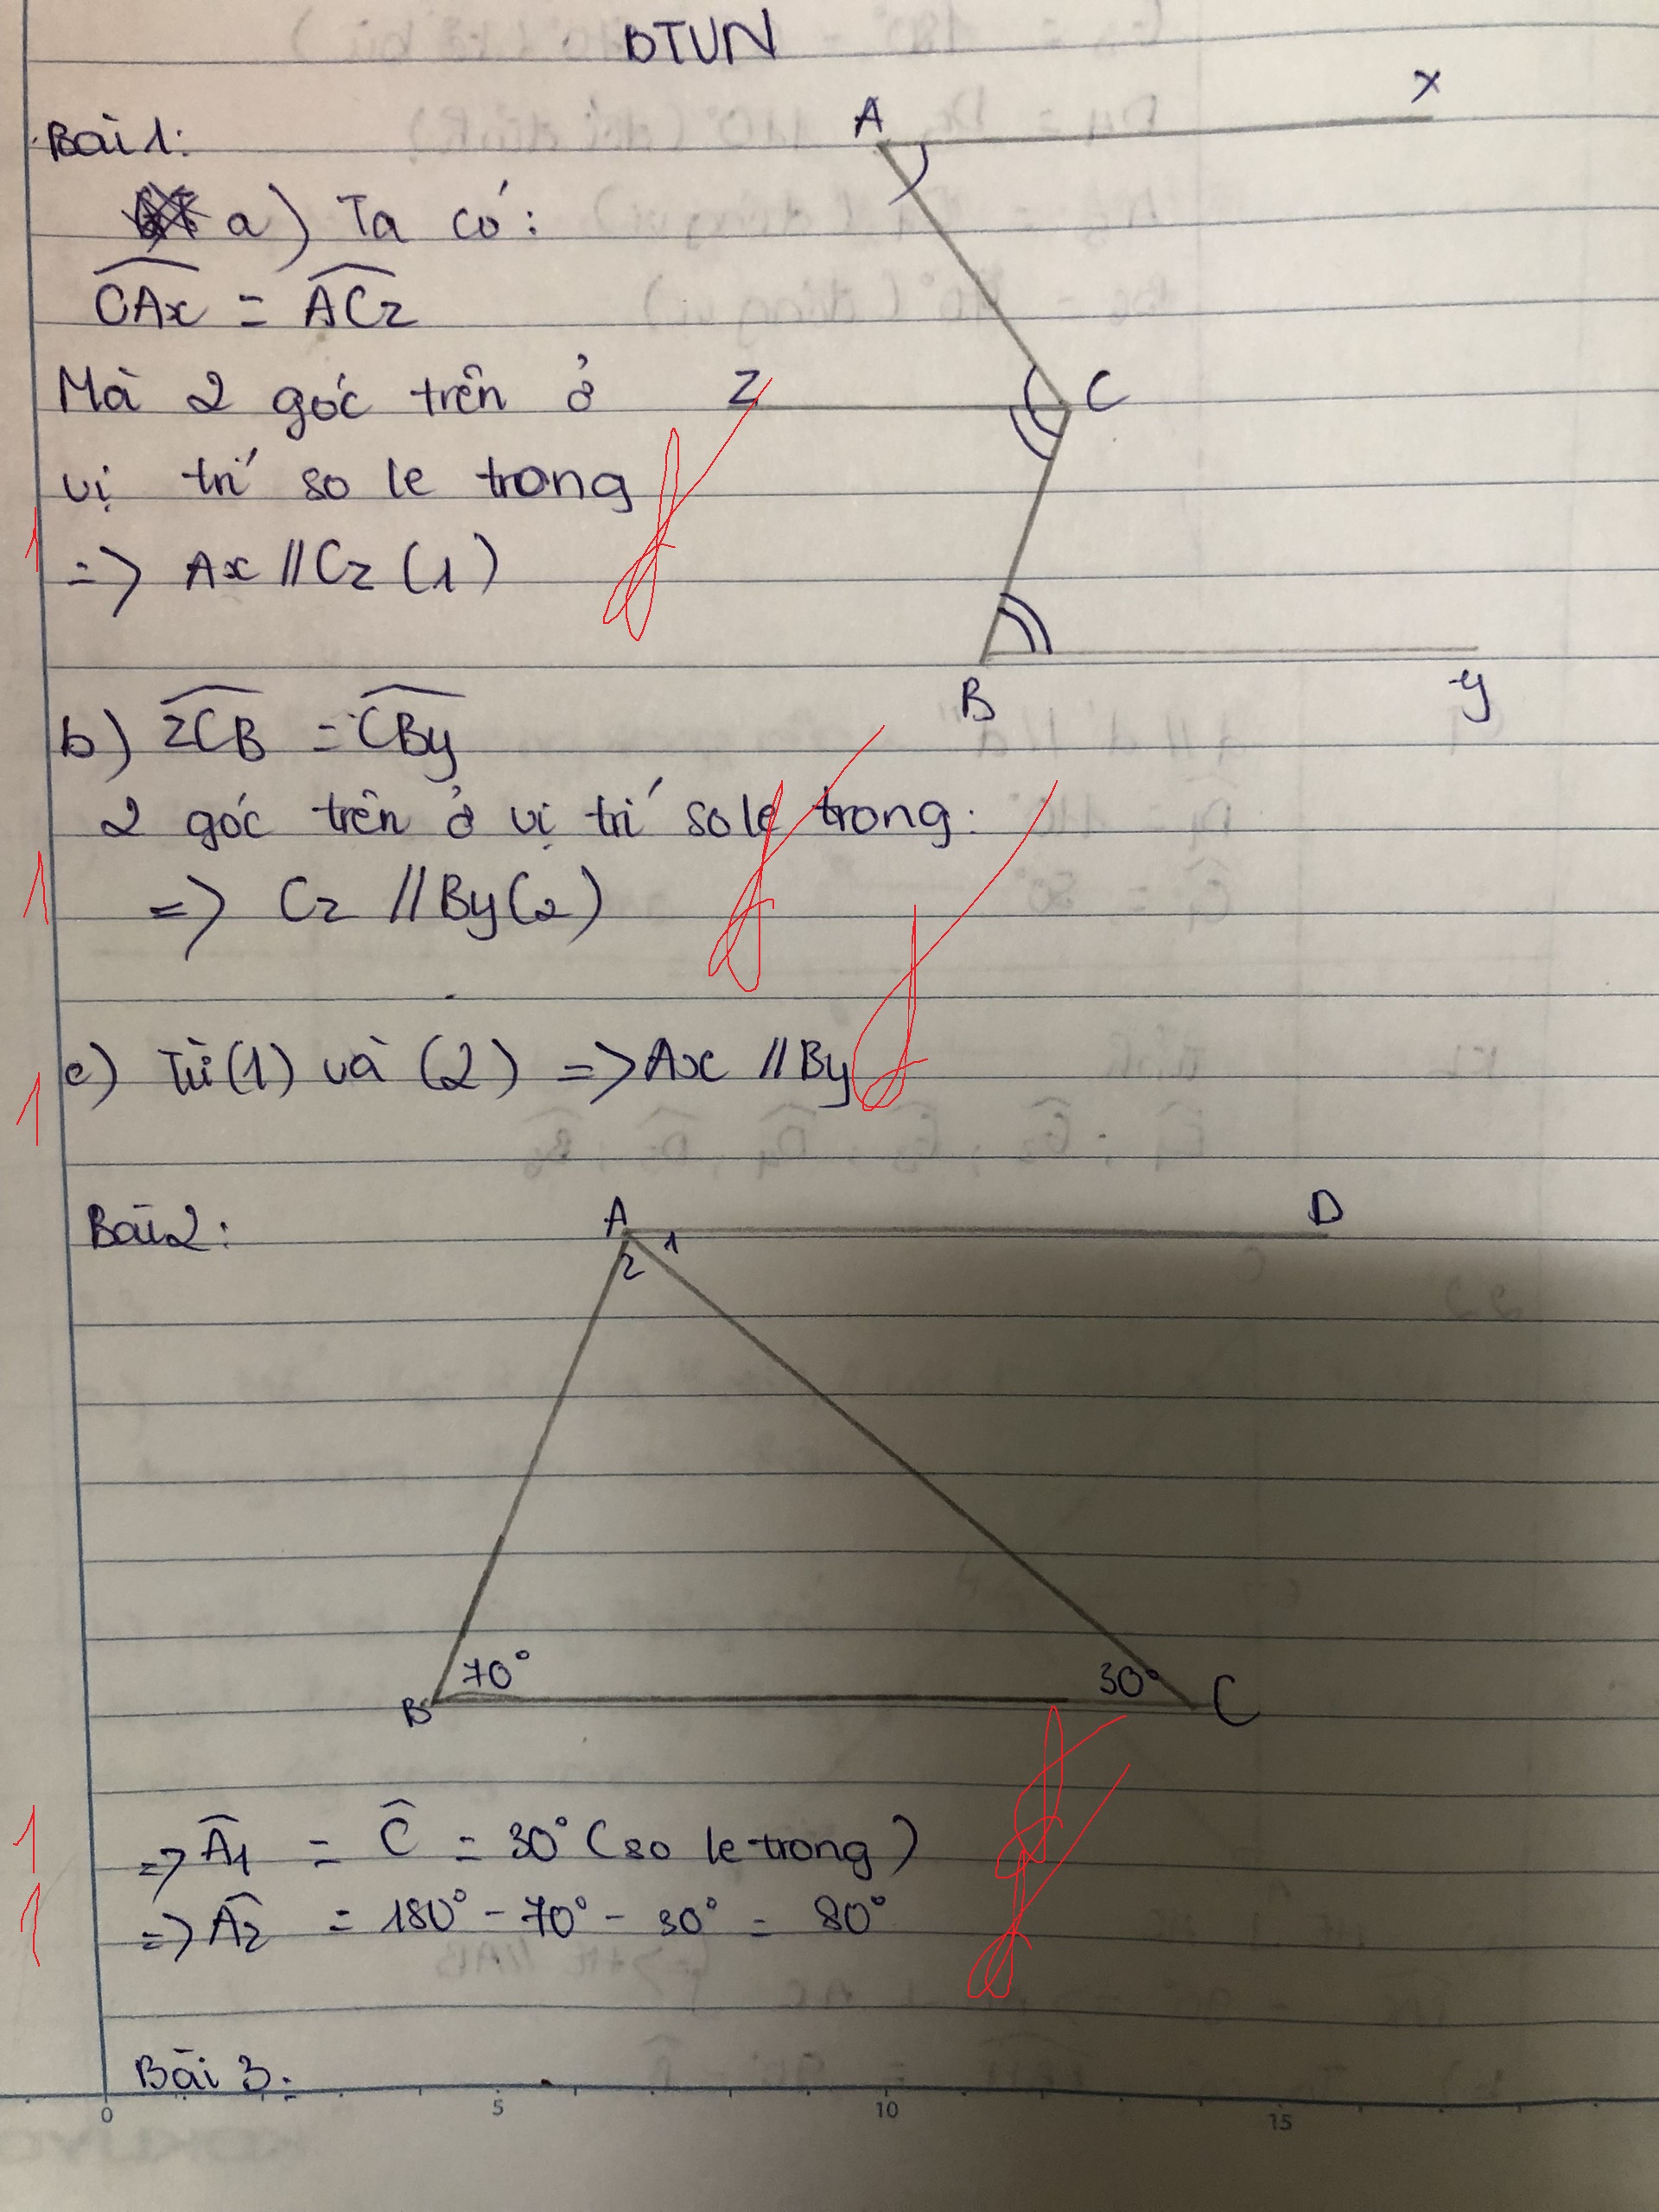 BTVN
Bài 1:
a) Ta có:
CAx = ACz
Mà 2 góc trên ở
vị trí so le trong
=> Ax // Cz (1)
A
x
z
C
B
y
1
b) zCB = CBy
2 góc trên ở vị trí so le trong:
=> Cz // By (2)
1
c) Từ (1) và (2) => Ax // By
1
Bài 2:
A
D
1
2
70°
30°
B
C
=> Â1 = Ĉ = 30° (so le trong)
1
=> Â2 = 180° - 70° - 30° = 80°
1
Bài 3:
0 5 10 15